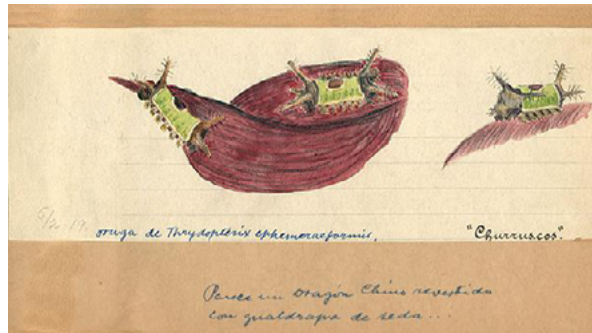 5/2 19.
oruga de Thrydopterix ephemoraeformis, "Churruscos".
Parece un Dragón Chino revestido
con gualdrapa de seda...